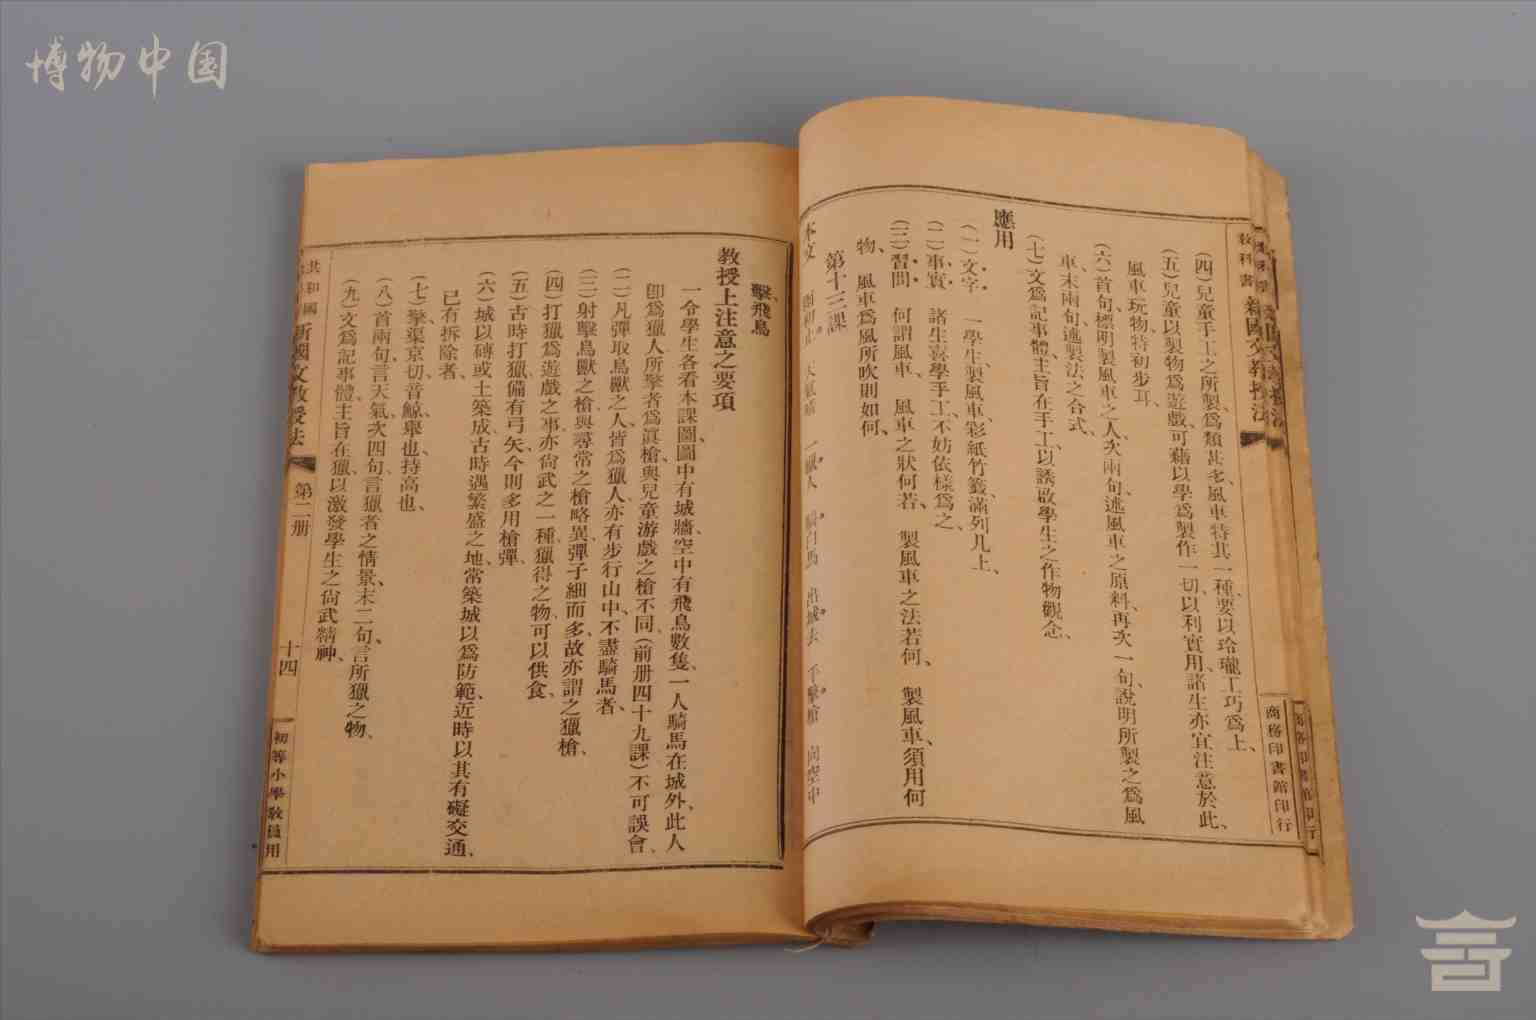 博物中国
教科書
新國文教授法
商務印書館印行
(四)兒童手工之所製、爲類甚多、風車特其一種、要以玲瓏工巧爲上、
(五)兒童以製物爲遊戲、可藉以學爲製作一切、以利實用、諸生亦宜注意於此、
風車玩物、特初步耳、
(六)首句、標明製風車之人、次兩句、述風車之原料、再次一句、說明所製之爲風
車、末兩句、述製法之合式、
(七)文爲記事體、主旨在手工、以誘啟學生之作物觀念、
應用
(一)文字 一學生製風車、彩紙竹籤、滿列几上、
(二)事實 諸生喜學手工、不妨依樣爲之、
(三)習問 何謂風車、 風車之狀何若、 製風車之法若何、 製風車、須用何
物、 風車爲風所吹則如何、
第十三課
本文 天氣晴 一獵人 騎白馬 出城去 手擊槍 向空中
擊飛鳥
教授上注意之要項
一令學生各看本課圖、圖中有城牆、空中有飛鳥數隻、一人騎馬在城外、此人
卽爲獵人、所擎者爲眞槍、與兒童游戲之槍不同、(前册四十九課)不可誤會、
(二)凡彈取鳥獸之人、皆爲獵人、亦有步行山中、不盡騎馬者、
(三)射擊鳥獸之槍、與尋常之槍略異、彈子細而多、故亦謂之獵槍、
(四)打獵爲遊戲之事、亦尙武之一種、獵得之物、可以供食、
(五)古時打獵、備有弓矢、今則多用槍彈、
(六)城以磚或土築成、古時遇繁盛之地、常築城以爲防範、近時以其有礙交通、
已有拆除者、
(七)擎、渠京切、音鯨、舉也、持高也、
(八)首兩句、言天氣、次四句、言獵者之情景、末二句、言所獵之物、
(九)文爲記事體、主旨在獵、以激發學生之尙武精神、
共和國
新國文教授法
第二册
十四
初等小學教員用